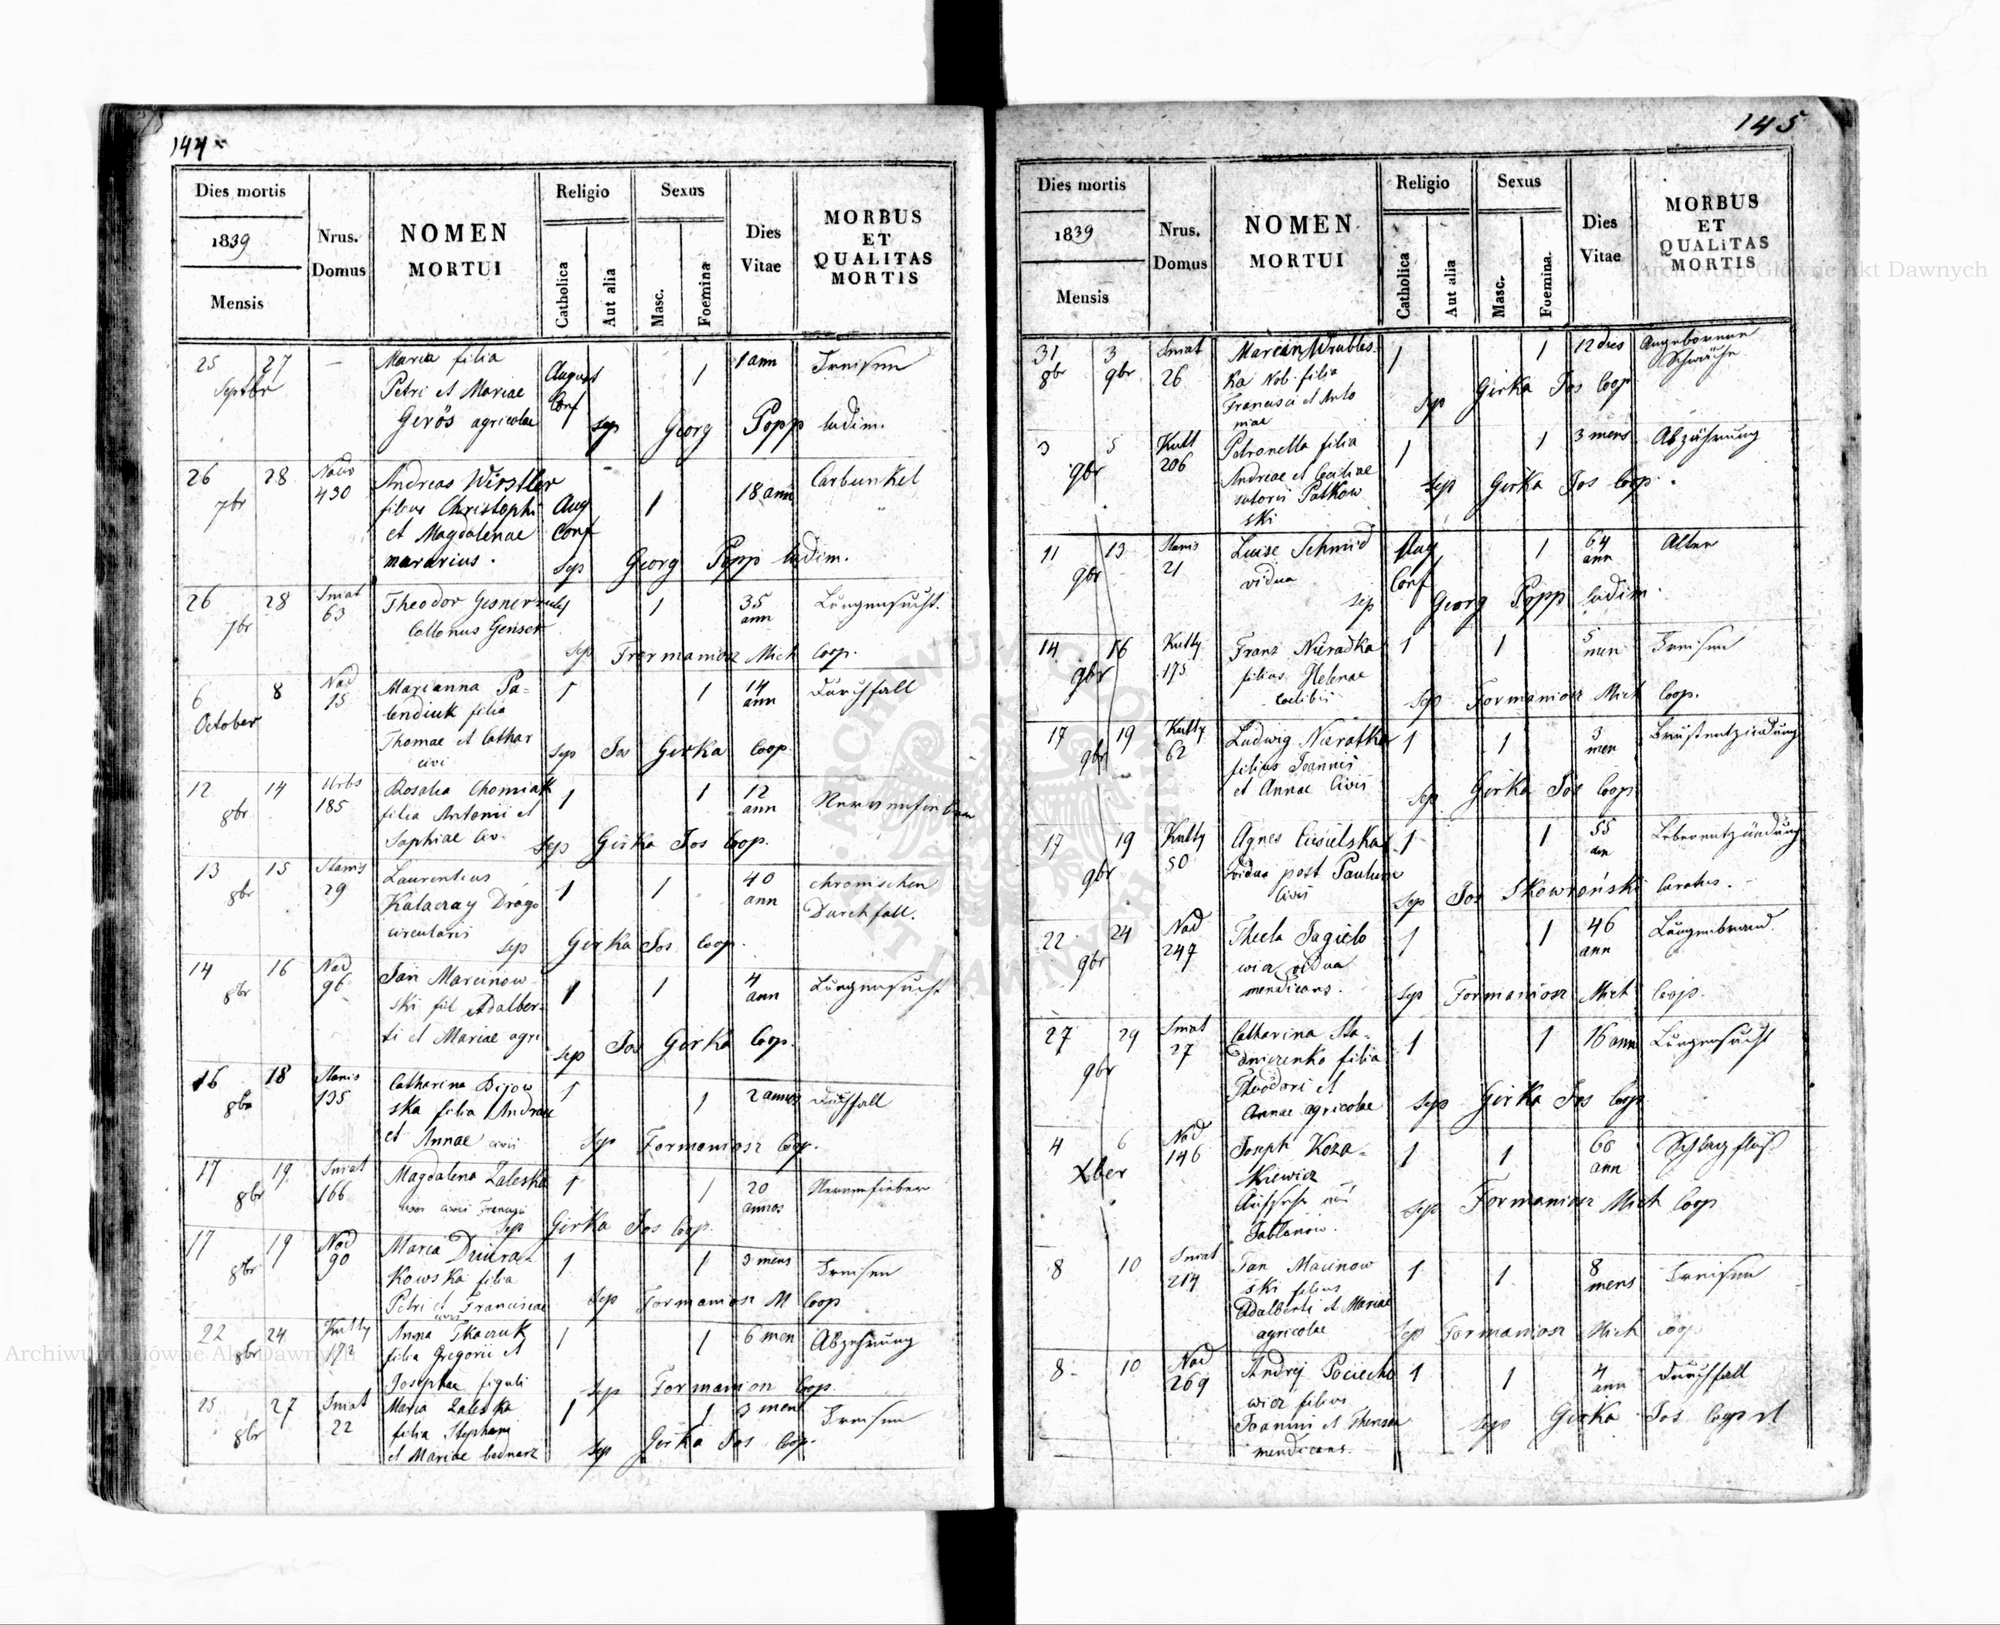 144
Dies mortis
1839
Mensis
Nrus.
Domus
NOMEN
MORTUI
Religio
Catholica
Aut alia
Sexus
Masc.
Foemina
Dies
Vitae
MORBUS
ET
QUALITAS
MORTIS
25 27
Septbr
—
Maria filia
Petri et Mariae
Gerös agricolae
August
Conf
1
1 ann
Freisen
sep Georg Popp ludim.
26 28
7br
Nadw
430
Andreas Wirstler
filius Christophi
et Magdalenae
murarius.
Aug
Conf
1
18 ann
Carbunkel
sep Georg Popp ludim.
26 28
7br
Sniat
63
Theodor
Collonus Genser
1
35
ann
Lungensucht.
Sep Formaniosz Mich Coop.
6 8
October
Nad
15
Marianna Pa-
lendiuk filia
Thomae et Cathar
civi
1
1
14
ann
Durchfall
Sep Jos Girka Coop
12 14
8br
Urbs
185
Rosalia Chomiak
filia Antonii et
Sophiae Civ.
1
1
12
ann
Nervenfieber
Sep Girka Jos Coop.
13 15
8br
Stanis
29
Laurentius
Kalaczay Drago
circularis
1
1
40
ann
chronischen
Durchfall.
sep Girka Jos Coop.
14 16
8br
Nad
96
Jan Marcinow-
ski fil Adalber-
ti et Mariae agri
1
1
4
ann
Lungensucht
sep Jos Girka Coop.
16 18
8br
Stanis
135
Catharina Dijow
ska filia Andreae
et Annae civii
1
1
2 annos
Durchfall
Sep Formaniosz Coop.
17 19.
8br
Sniat
166
Magdalena Zaleska
1
1
20
annos
Nervenfieber
Sep Girka Jos Coop.
17 19
8br
Nad
90
Maria Dziura-
Kowska filia
Petri et Franciscae
civis
1
1
3 mens
Freisen
Sep Formaniosz M Coop
22 24
8br
Kutty
192
Anna Tkaczuk
filia Gregorii et
Josephae figuli
1
1
6 men
Abzehrung
Sep Formanion Coop.
25 27
8br
Sniat
22
Maria Zaleska
filia Stephani
et Mariae bednarz
1
1
3 men
Freisen
sep Girka Jos Coop.
145
Dies mortis
1839
Mensis
Nrus.
Domus
NOMEN
MORTUI
Religio
Catholica
Aut alia
Sexus
Masc.
Foemina.
Dies
Vitae
MORBUS
ET
QUALITAS
MORTIS
31 3
8br 9br
Sniat
26
Marian Wrubles-
ka Nob. filia
Francisci et Anto
niae
1
1
12 dies
Angeborene
Schwäche
sep Girka Jos Coop
3 5
9br
Kutt
206
Petronella filia
Andreae et Ceciliae
sutoris Patkow
ski
1
1
3 mens
Abzährung
Sep Girka Jos Coop.
11 13
9br
Stanis
21
Luise Schmid
vidua
Aug
Conf
1
64
ann
Alter
sep Georg Popp ludim.
14 16
9br
Kutty
175
Franz Nieradka
filius Helenae
coelibis
1
1
5
men
Freisen
Sep Formaniosz Mich Coop.
17 19
9br
Kutty
62
Ludwig Nieratka
filius Joannis
et Annae Civis
1
1
3
men
Brustentzündung
Sep Girka Jos Coop.
17 19
9br
Kutty
50
Agnes Ciesielska
vidua post Paulum
Civis
1
1
55
ann
Leberentzündung
Sep Jos Skowroński Curatus.
22 24
9br
Nad
247
Thecla Jagielo
wicz vidua
mendicans.
1
1
46
ann
Lungenbrand.
Sep Formaniosz Mich Coop.
27 29
9br
Sniat
27
Catharina Sta-
dniczenko filia
Theodori et
Annae agricolae
1
1
16 ann
Lungensucht
Sep Girka Jos Coop
4 6
Xber
Nad
146
Joseph Koza-
kiewicz
Jablanow.
1
1
66
ann
Schlagfluß
Sep Formaniosz Mich Coop
8 10
Sniat
214
Jan Macinow
ski filius
Adalberti et Mariae
agricolae
1
1
8
mens
Freisen
Sep Formaniosz Mich Coop
8 10
Nad
269
Andrej Pociecho
wicz filius
Joannis et Theresae
mendicans.
1
1
4
ann
Durchfall
Sep Girka Jos Coop et
Archiwum Główne Akt Dawnych
Archiwum Główne Akt Dawnych